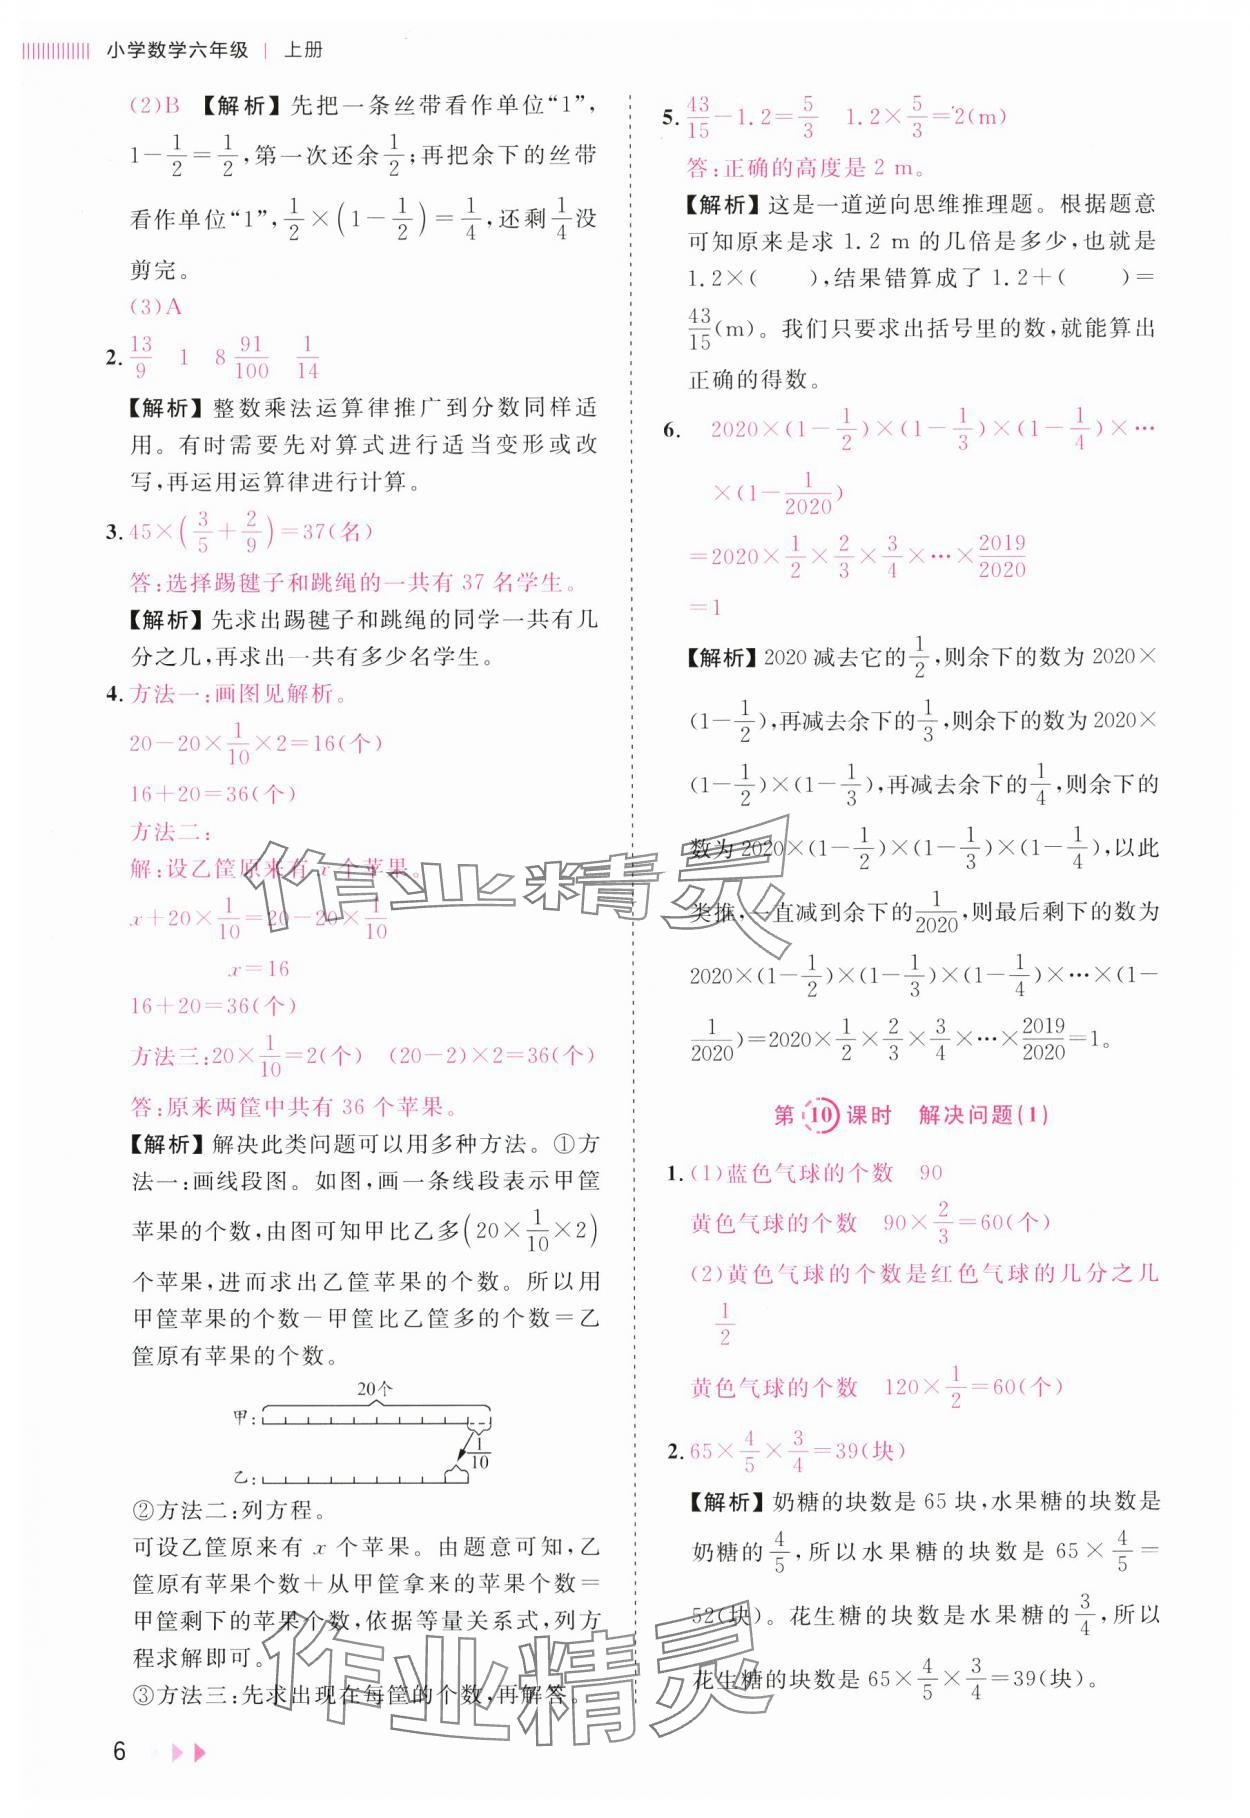 小学数学六年级 | 上册
(2)B 【解析】先把一条丝带看作单位“1”,
1－1/2＝1/2,第一次还余1/2;再把余下的丝带
看作单位“1”,1/2×(1－1/2)＝1/4,还剩1/4没
剪完。
(3)A
2. 13/9 1 8 91/100 1/14
【解析】整数乘法运算律推广到分数同样适
用。有时需要先对算式进行适当变形或改
写,再运用运算律进行计算。
3. 45×(3/5＋2/9)＝37(名)
答:选择踢毽子和跳绳的一共有 37 名学生。
【解析】先求出踢毽子和跳绳的同学一共有几
分之几,再求出一共有多少名学生。
4. 方法一:画图见解析。
20－20×1/10×2＝16(个)
16＋20＝36(个)
方法二:
解:设乙筐原来有 x 个苹果。
x＋20×1/10＝20－20×1/10
x＝16
16＋20＝36(个)
方法三:20×1/10＝2(个) (20－2)×2＝36(个)
答:原来两筐中共有 36 个苹果。
【解析】解决此类问题可以用多种方法。①方
法一:画线段图。如图,画一条线段表示甲筐
苹果的个数,由图可知甲比乙多(20×1/10×2)
个苹果,进而求出乙筐苹果的个数。所以用
甲筐苹果的个数－甲筐比乙筐多的个数＝乙
筐原有苹果的个数。
20个
甲:
1/10
乙:
②方法二:列方程。
可设乙筐原来有 x 个苹果。由题意可知,乙
筐原有苹果个数＋从甲筐拿来的苹果个数＝
甲筐剩下的苹果个数,依据等量关系式,列方
程求解即可。
③方法三:先求出现在每筐的个数,再解答。
6
5. 43/15－1.2＝5/3 1.2×5/3＝2(m)
答:正确的高度是 2 m。
【解析】这是一道逆向思维推理题。根据题意
可知原来是求 1.2 m 的几倍是多少,也就是
1.2×( ),结果错算成了 1.2＋( )＝
43/15(m)。我们只要求出括号里的数,就能算出
正确的得数。
6. 2020×(1－1/2)×(1－1/3)×(1－1/4)×…
×(1－1/2020)
＝2020×1/2×2/3×3/4×…×2019/2020
＝1
【解析】2020 减去它的1/2,则余下的数为 2020×
(1－1/2),再减去余下的1/3,则余下的数为 2020×
(1－1/2)×(1－1/3),再减去余下的1/4,则余下的
数为 2020×(1－1/2)×(1－1/3)×(1－1/4),以此
类推,一直减到余下的1/2020,则最后剩下的数为
2020×(1－1/2)×(1－1/3)×(1－1/4)×…×(1－
1/2020)＝2020×1/2×2/3×3/4×…×2019/2020＝1。
第10课时 解决问题(1)
1. (1)蓝色气球的个数 90
黄色气球的个数 90×2/3＝60(个)
(2)黄色气球的个数是红色气球的几分之几
1/2
黄色气球的个数 120×1/2＝60(个)
2. 65×4/5×3/4＝39(块)
【解析】奶糖的块数是 65 块,水果糖的块数是
奶糖的4/5,所以水果糖的块数是 65×4/5＝
52(块)。花生糖的块数是水果糖的3/4,所以
花生糖的块数是 65×4/5×3/4＝39(块)。
作业精灵
作业精灵